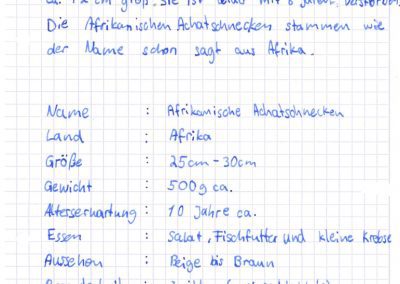 ca. 12 cm groß. Sie ist mit 6 Jahren verstorben
Die Afrikanischen Achatschnecken stammen wie
der Name schon sagt aus Afrika.
Name : Afrikanische Achatschnecken
Land : Afrika
Größe : 25cm-30cm
Gewicht : 500g ca.
Alterserhartung : 10 Jahre ca.
Essen : Salat, Fischfutter und kleine Krebse
Aussehen : Beige bis Braun